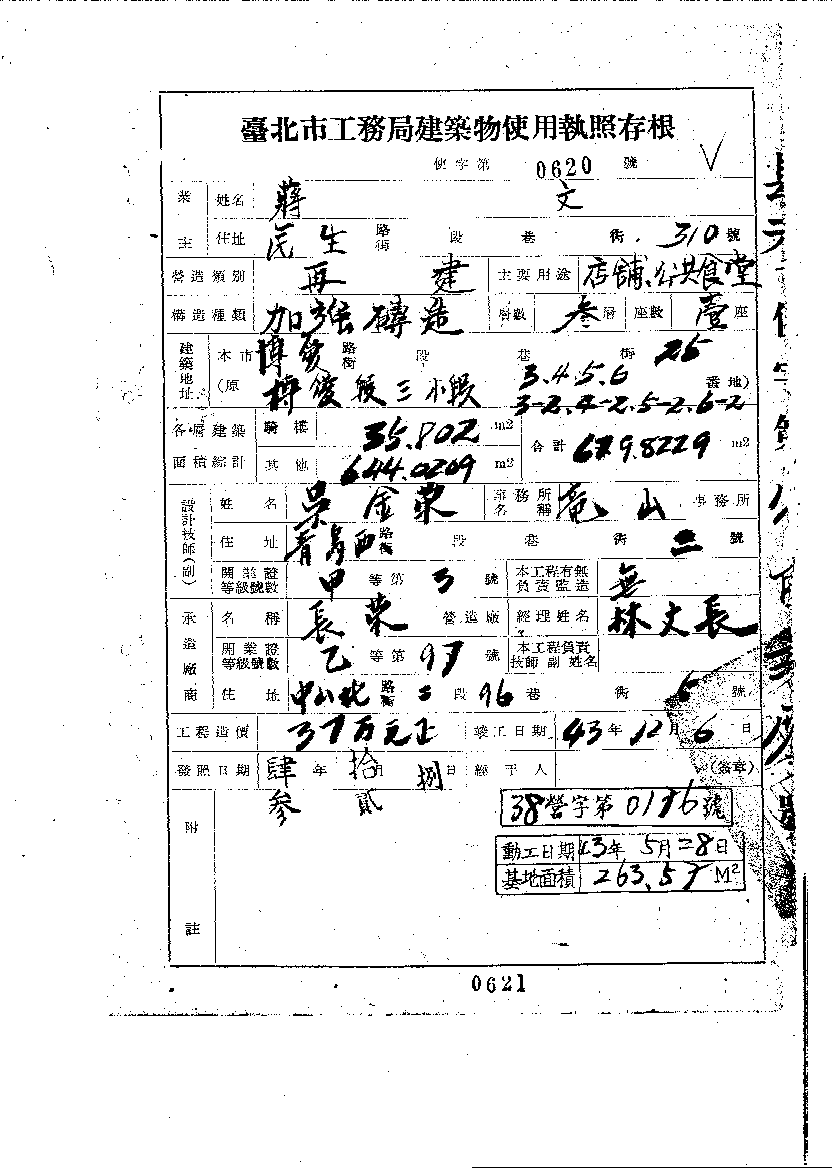 臺北市工務局建築物使用執照存根
使字第 0620 號
業主 姓名 蔣 文
住址 民生 路街 段 巷 街 310 號
營造類別 再建 主要用途 店舖、公共食堂
構造種類 加強磚造 層數 叁 層 座數 壹 座
建築地址 本市 博愛 路街 段 巷 街 25
(原 博愛段三小段 3.4.5.6 番地)
3-2.4-2.5-2.6-2
各層建築面積綜計 騎樓 35.802 m2 合計 679.8229 m2
其他 644.0209 m2
設計技師(副) 姓名 吳金榮 事務所名稱 竜山 事務所
住址 青島西 路街 段 巷 街 二 號
開業證等級號數 甲 等第 3 號 本工程有無負責監造 無
承造廠商 名稱 長榮 營造廠 經理姓名 林文長
開業證等級號數 乙 等第 97 號 本工程負責技師副姓名
住址 中山北 路街 二 段 96 巷 街 6 號
工程造價 37万元正 竣工日期 43年12月6日
發照日期 肆叁年拾貳月捌日 經手人 (簽章)
附註
38營字第0176號
動工日期 43年5月28日
基地面積 263.57 M²
0621